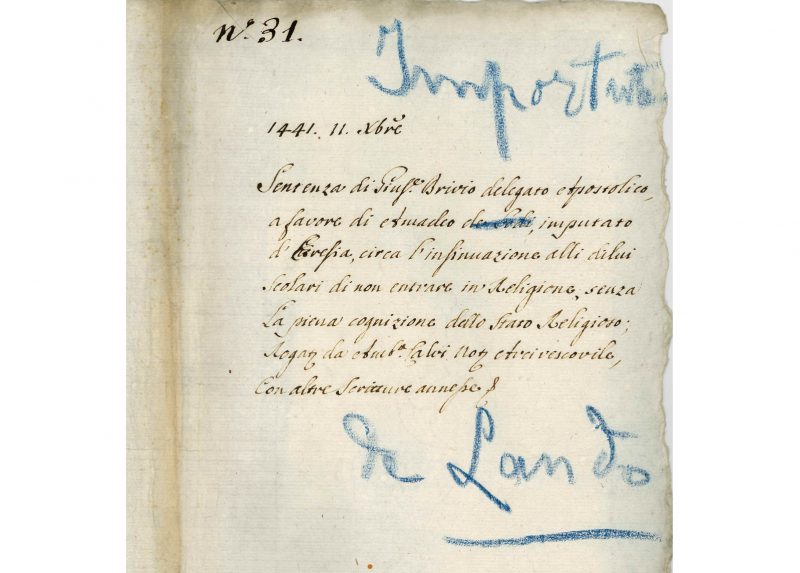 N.º 31.
Importante
1441. 11. Xbrẽ
Sentenza di Giusᵉ Brivio delegato Apostolico,
a favore di Amadeo de, imputato
d'Eresia, circa l'insinuazione alli di lui
Scolari di non entrare in Religione, senza
La piena cognizione dello Stato Religioso;
Rogaz da Ambᵒ Calvi Noz Arcivescovile,
Con altre Scritture annesse
de Lando